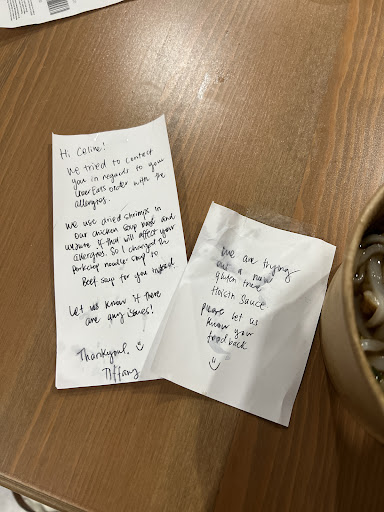 Hi Celine!
We tried to contact
you in regards to your
UberEats order with the
allergies.
We use dried shrimps in
our chicken soup base and
unsure if that will affect your
allergies. So I changed the
noodle soup to
Beef soup for you instead.
Let us know if there
are any issues!
Thankyou!
Tiffany
We are trying
out a new
gluten free
Hoisin Sauce
Please let us
know your
feedback